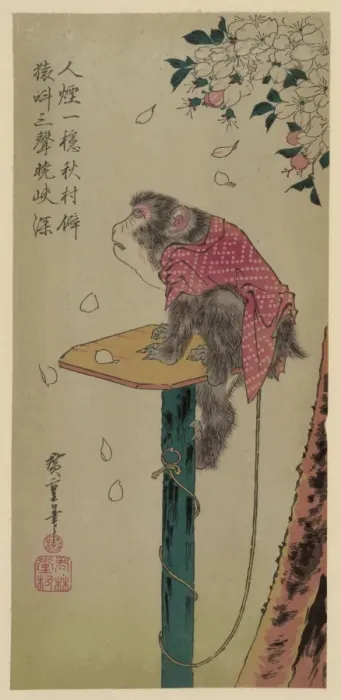 人煙一穗秋村僻
猿呌三聲曉峡深
廣重筆